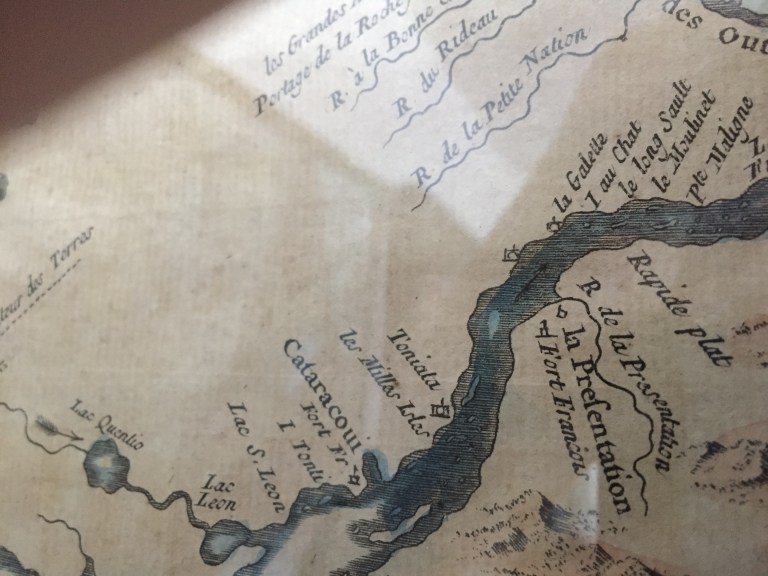 les Grandes
Portage de la Roche
R. à la Bonne
R. du Rideau
R. de la Petite Nation
des Out
la Galette
I au Chat
le long Sault
le Mouhnet
Pte Maligne
Rapide plat
R. de la Presentation
la Preſentation
Fort Francois
Toniata
les Milles Isles
Cataracoui
Fort Fr
I Tonti
Lac S. Leon
Lac
Leon
Lac Quentio
teur des Terres